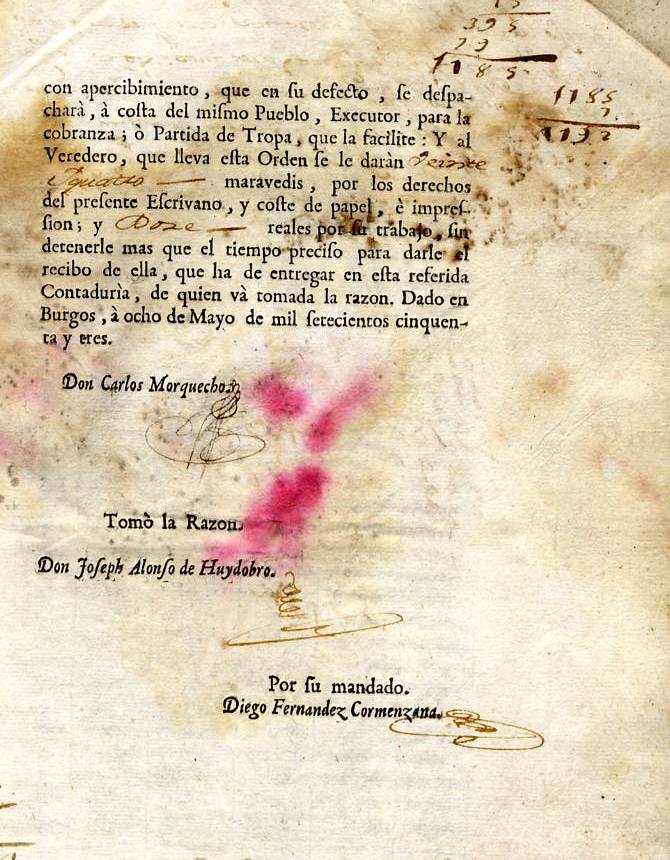 395
1185
1185
7
1192
con apercibimiento, que en ſu defecto, ſe deſpa-
charà, à coſta del miſmo Pueblo, Executor, para la
cobranza; ò Partida de Tropa, que la facilite: Y al
Veredero, que lleva eſta Orden ſe le daràn Veinte
iquatro maravedis, por los derechos
del preſente Eſcrivano, y coſte de papel, è impreſ-
ſion; y Doze reales por ſu trabajo, ſin
detenerle mas que el tiempo preciſo para darle el
recibo de ella, que ha de entregar en eſta referida
Contadurìa, de quien và tomada la razon. Dado en
Burgos, à ocho de Mayo de mil ſetecientos cinquen-
ta y tres.
Don Carlos Morquecho.
Tomò la Razon.
Don Joſeph Alonſo de Huydobro.
Por ſu mandado.
Diego Fernandez Cormenzana.